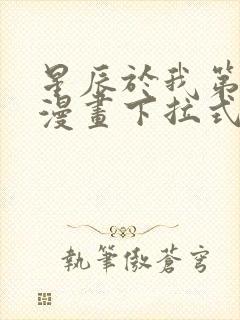 星辰於我第
漫畫下拉式
執筆傲蒼穹